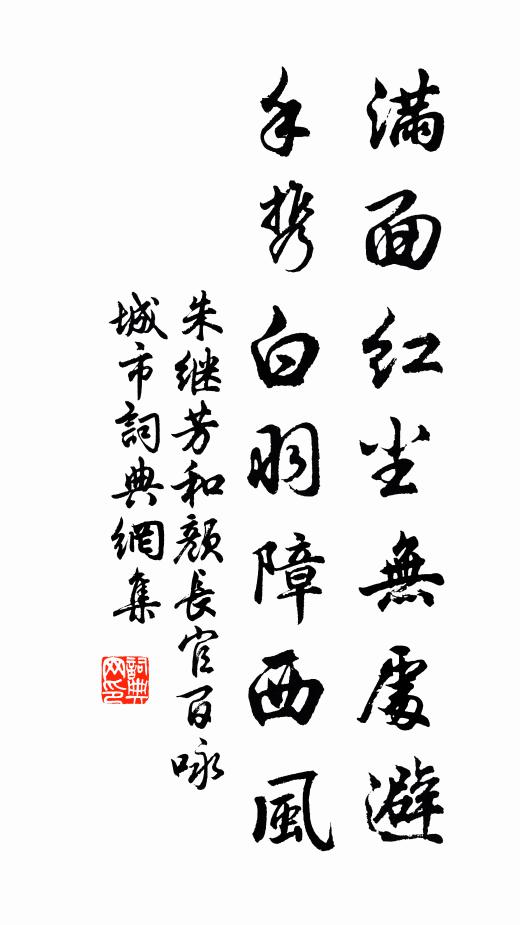 滿面红尘無處避
手携白羽障西風
朱继芳和顏長官百咏
城市詞典網集
詞典网印